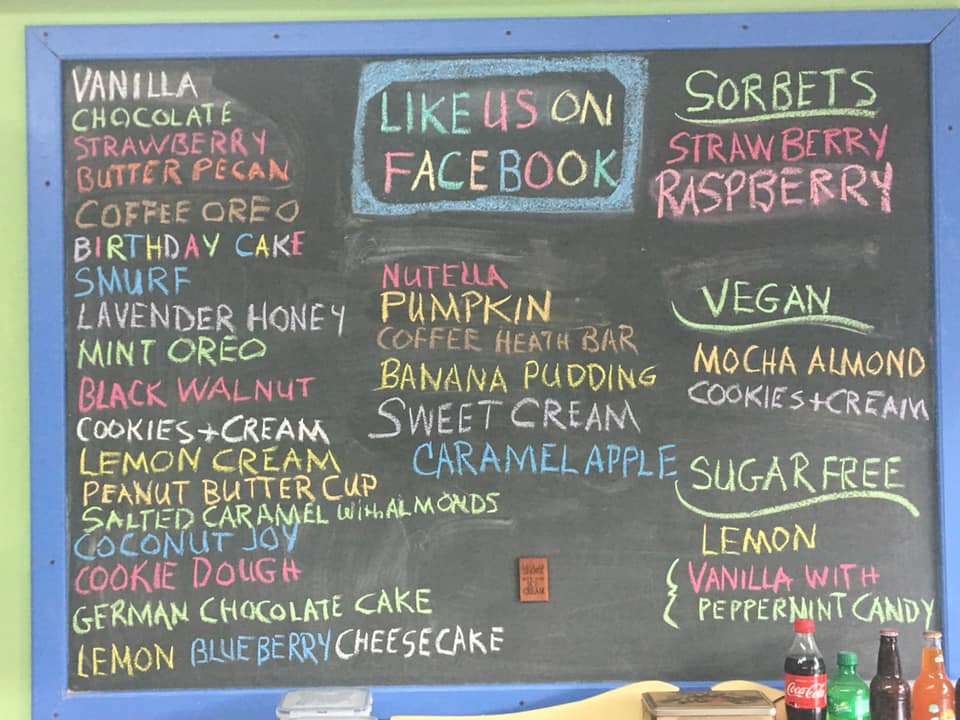 VANILLA
CHOCOLATE
STRAWBERRY
BUTTER PECAN
COFFEE OREO
BIRTHDAY CAKE
SMURF
LAVENDER HONEY
MINT OREO
BLACK WALNUT
COOKIES + CREAM
LEMON CREAM
PEANUT BUTTER CUP
SALTED CARAMEL with ALMONDS
COCONUT JOY
COOKIE DOUGH
GERMAN CHOCOLATE CAKE
LEMON BLUEBERRY CHEESECAKE
LIKE US ON
FACEBOOK
NUTELLA
PUMPKIN
COFFEE HEATH BAR
BANANA PUDDING
SWEET CREAM
CARAMEL APPLE
SORBETS
STRAWBERRY
RASPBERRY
VEGAN
MOCHA ALMOND
COOKIES + CREAM
SUGAR FREE
LEMON
VANILLA WITH
PEPPERMINT CANDY
Coca-Cola